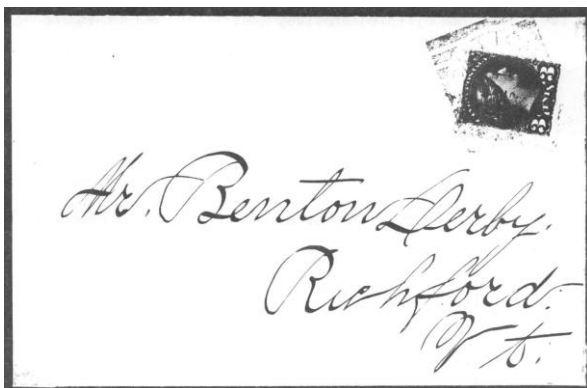 Mr. Benton Derby.
Richford.
Vt.